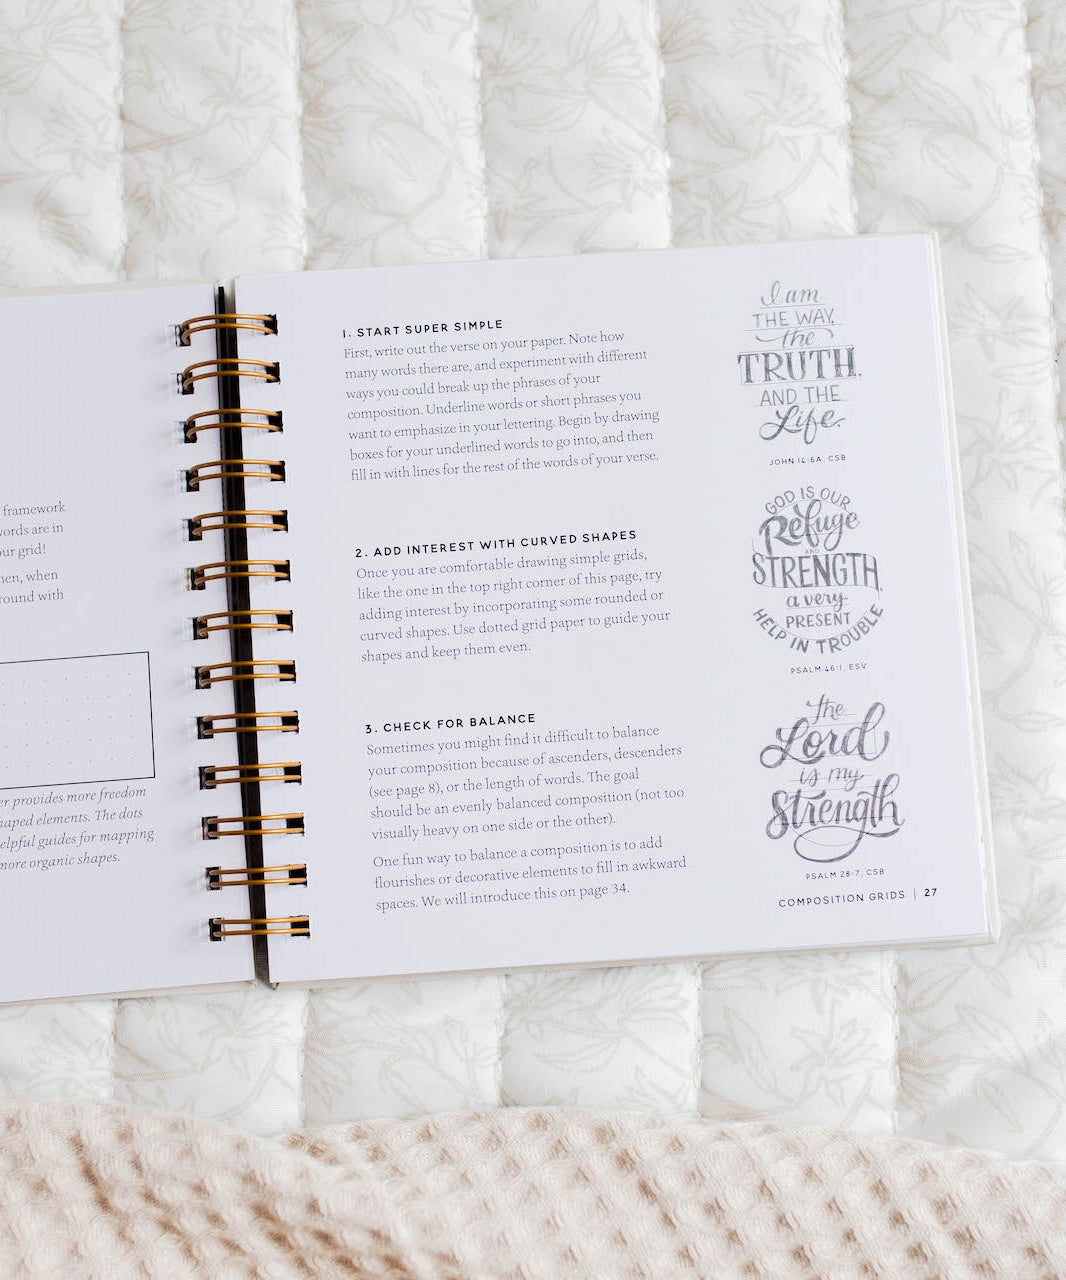 framework
words are in
our grid!
hen, when
round with
er provides more freedom
haped elements. The dots
elpful guides for mapping
more organic shapes.
1. START SUPER SIMPLE
First, write out the verse on your paper. Note how
many words there are, and experiment with different
ways you could break up the phrases of your
composition. Underline words or short phrases you
want to emphasize in your lettering. Begin by drawing
boxes for your underlined words to go into, and then
fill in with lines for the rest of the words of your verse.
2. ADD INTEREST WITH CURVED SHAPES
Once you are comfortable drawing simple grids,
like the one in the top right corner of this page, try
adding interest by incorporating some rounded or
curved shapes. Use dotted grid paper to guide your
shapes and keep them even.
3. CHECK FOR BALANCE
Sometimes you might find it difficult to balance
your composition because of ascenders, descenders
(see page 8), or the length of words. The goal
should be an evenly balanced composition (not too
visually heavy on one side or the other).
One fun way to balance a composition is to add
flourishes or decorative elements to fill in awkward
spaces. We will introduce this on page 34.
I am
THE WAY,
the
TRUTH,
AND THE
Life.
JOHN 14:6A, CSB
GOD IS OUR
Refuge
AND
STRENGTH,
a very
PRESENT
HELP IN TROUBLE
PSALM 46:1, ESV
the
Lord
is my
Strength
PSALM 28:7, CSB
COMPOSITION GRIDS | 27